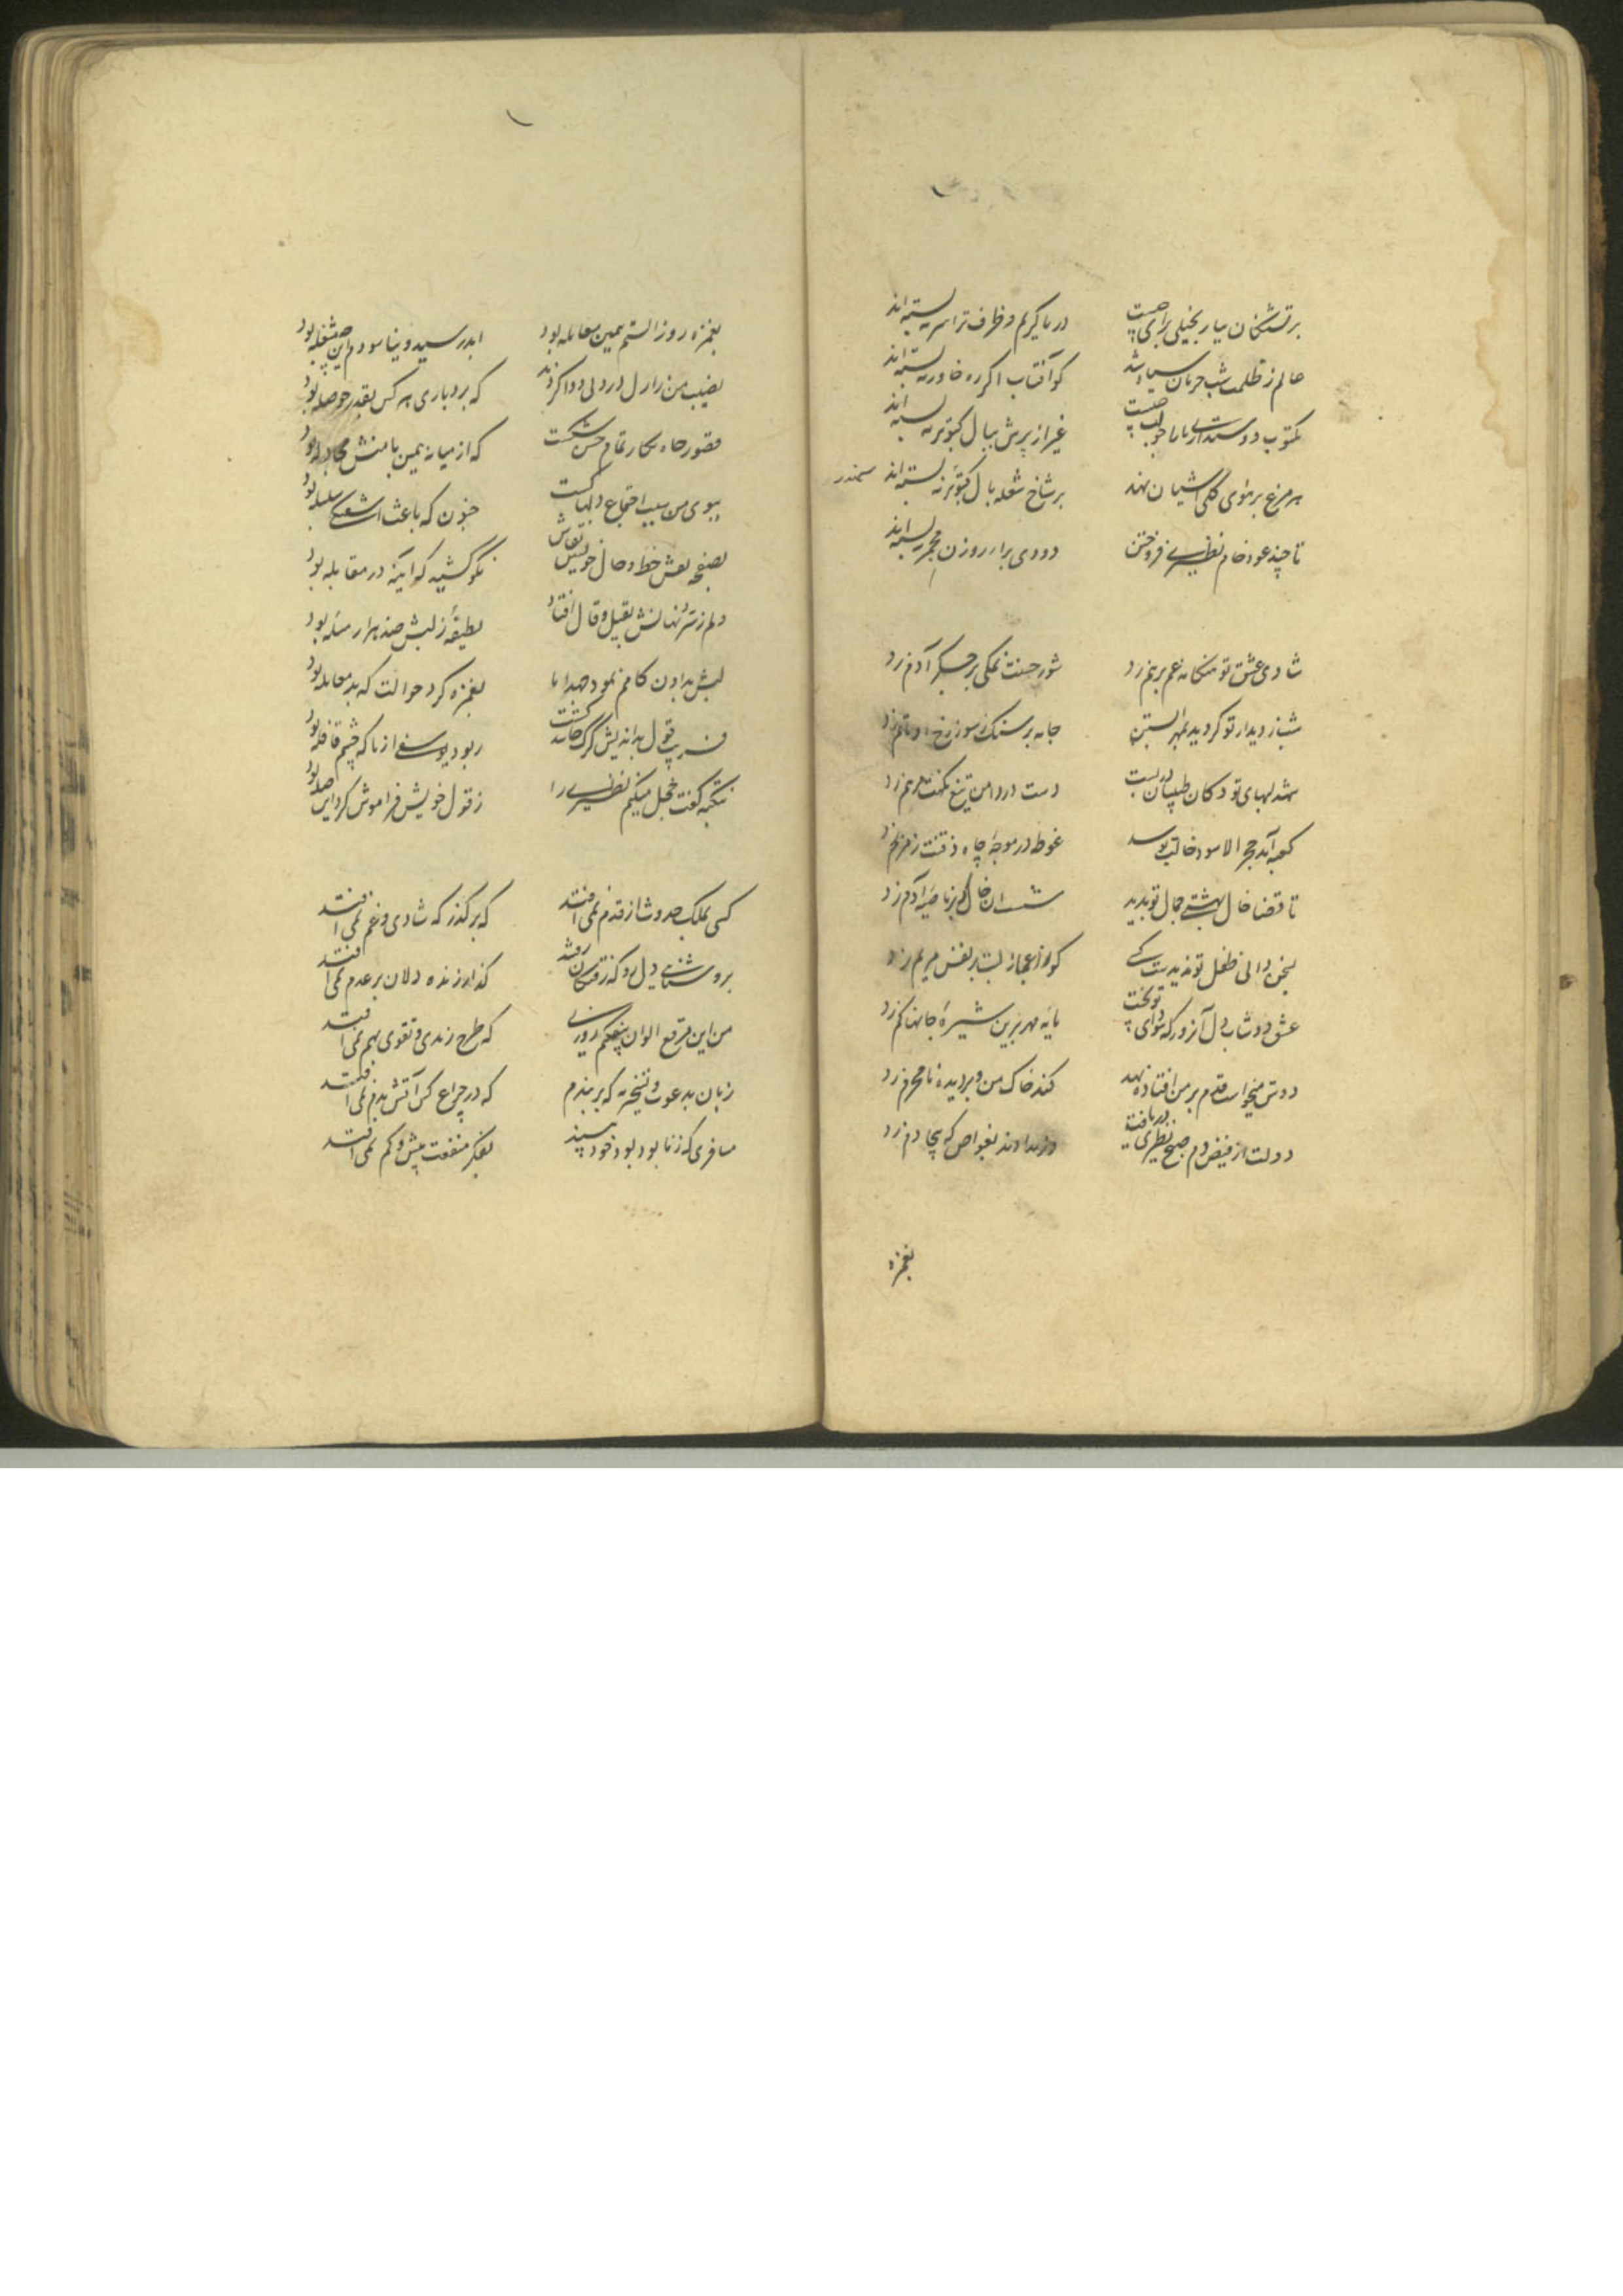 بر تشنگان بیار بخیلی برای چیست
دریا کریم و ظرف ترا سر نبسته اند
عالم ز ظلمت شب حرمان سیاه شد
کو آفتاب اگر ره خاور نبسته اند
مکتوب دوستدار یاران جواب چیست
غیر از پرش ببال کبوتر نبسته اند
هر مرغ بر هوای گلی آشیان نهد
بر شاخ شعله بال کبوتر نبسته اند
سمندر
تا چند عود خام نظیری فروختن
دودی برار روزن مجمر نبسته اند
شادی عشق تو هنگامه غم بر هم زد
شور حسنت نمکی بر جگر آدم زد
دیدار تو کردید
جامه بر سنگ ز سوز
شهد لبهای تو دکان طبیبان در بست
دست در دامن تیغ مرهم زد
کعبه آمد حجر الاسود خالت بوسد
غوطه در موجه چاه ذقنت زمزم زد
تا قضا خال بهشتی جمال تو بدید
آن خال که بر ناصیه آدم زد
بسخن دانی طفل تو ندیدست کسی
کو ز اعجاز لبت بر نفس مریم زد
عشق دوشاب دل آن روز که سودای تو پخت
پایه مهر برین شیره جانها کم زد
دوش میخواست قدم بر من افتاده نهد
کند خاک من و بر دیده نامحرم زد
دولت از فیض دم صبح نظیری دریافت
دادند بغواص که دم زد
بغمزه
بغمزه روز الستم همین معامله بود
ابد رسید و نیاسودم این چه مشغله بود
نصیب من ز ازل درد بی دوا کردند
که بردباری هر کس بقدر حوصله بود
قصور جاه تمام حسن شکست
که از میانه همین با منش مجادله بود
ببوی من سبب اجتماع دلها گشت
جنون که باعث آشفتگی سلسله بود
بصفحه نقش خط و خال خویش نقاش
نکو کشید که آینه در مقابله بود
دلم ز سر نهانش بقیل و قال افتاد
لطیفه ز لبش صد هزار مسئله بود
لبش بدادن کامم نمود
بغمزه کرد حوالت که بد معامله بود
فریب قول بداندیش گرگ کشت
ربود یوسفی از ما که چشم قافله بود
نکته گفت خجل میکنم نظیری را
ز قول خویش فراموش کرد این صله بود
کسی بملک حدوث از قدم نمی افتد
که بر گذر که شادی و غم نمی افتد
بروشنایی دل رو
گذار زنده دلان بر عدم نمی افتد
من این مرقع الوان
که طرح رندی و تقوی بهم نمی افتد
زبان بدعوت که بر بندم
که در چراغ کس آتش بدم نمی افتد
مسافری که ز نابود بود خود
بفکر منفعت بیش و کم نمی افتد